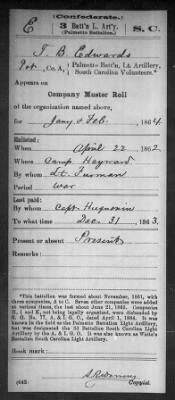 (Confederate.)
E 3 Batt'n L. Art'y. S. C.
(Palmetto Battalion.)
T. B. Edwards
Pvt., Co. A, Palmetto Batt'n, Lt. Artillery,
South Carolina Volunteers.*
Appears on
Company Muster Roll
of the organization named above,
for Jany & Feb, 1864
Enlisted:
When April 22 1862
Where Camp Hayward
By whom Lt. Furman
Period war
Last paid:
By whom Capt. Huguenin
To what time Dec. 31 1863
Present or absent Present
Remarks:
*This battalion was formed about November, 1861, with
three companies, A to C. Seven other companies were added
at various times, the last about June 21, 1862. Companies
H, I and K, not being legally organized, were disbanded by
S. O. No. 77, A. & I. G. O., dated April 1, 1864. It was
known in the field as the Palmetto Battalion Light Artillery,
but was designated the 3d Battalion South Carolina Light
Artillery by the A. & I. G. O. It was also known as White's
Battalion South Carolina Light Artillery.
Book mark:
(642)
Copyist.